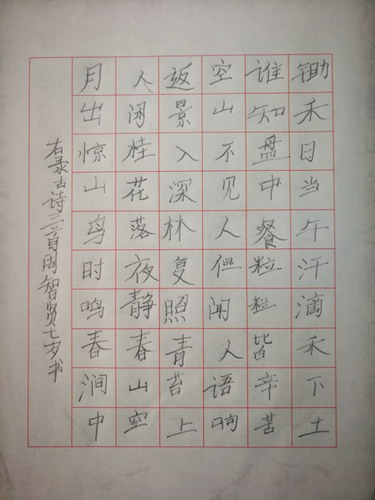 锄禾日当午汗滴禾下土
谁知盘中餐粒粒皆辛苦
空山不见人但闻人语响
返景入深林复照青苔上
人闲桂花落夜静春山空
月出惊山鸟时鸣春涧中
右录古诗三首周智贤七岁书